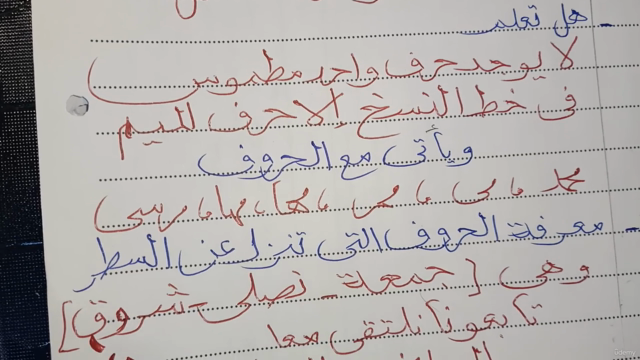 - هل تعلم
لا يوجد حرف واحد مطموس
فى خط النسخ إلا حرف الميم
ويأتى مع الحروف
محمد ، مى ، مس ، مها ، بها ، مرسى
- معرفة الحروف التى تنزل عن السطر
وهى [جمعة - نصلى - شروق]
تابعونا نلتقى معا